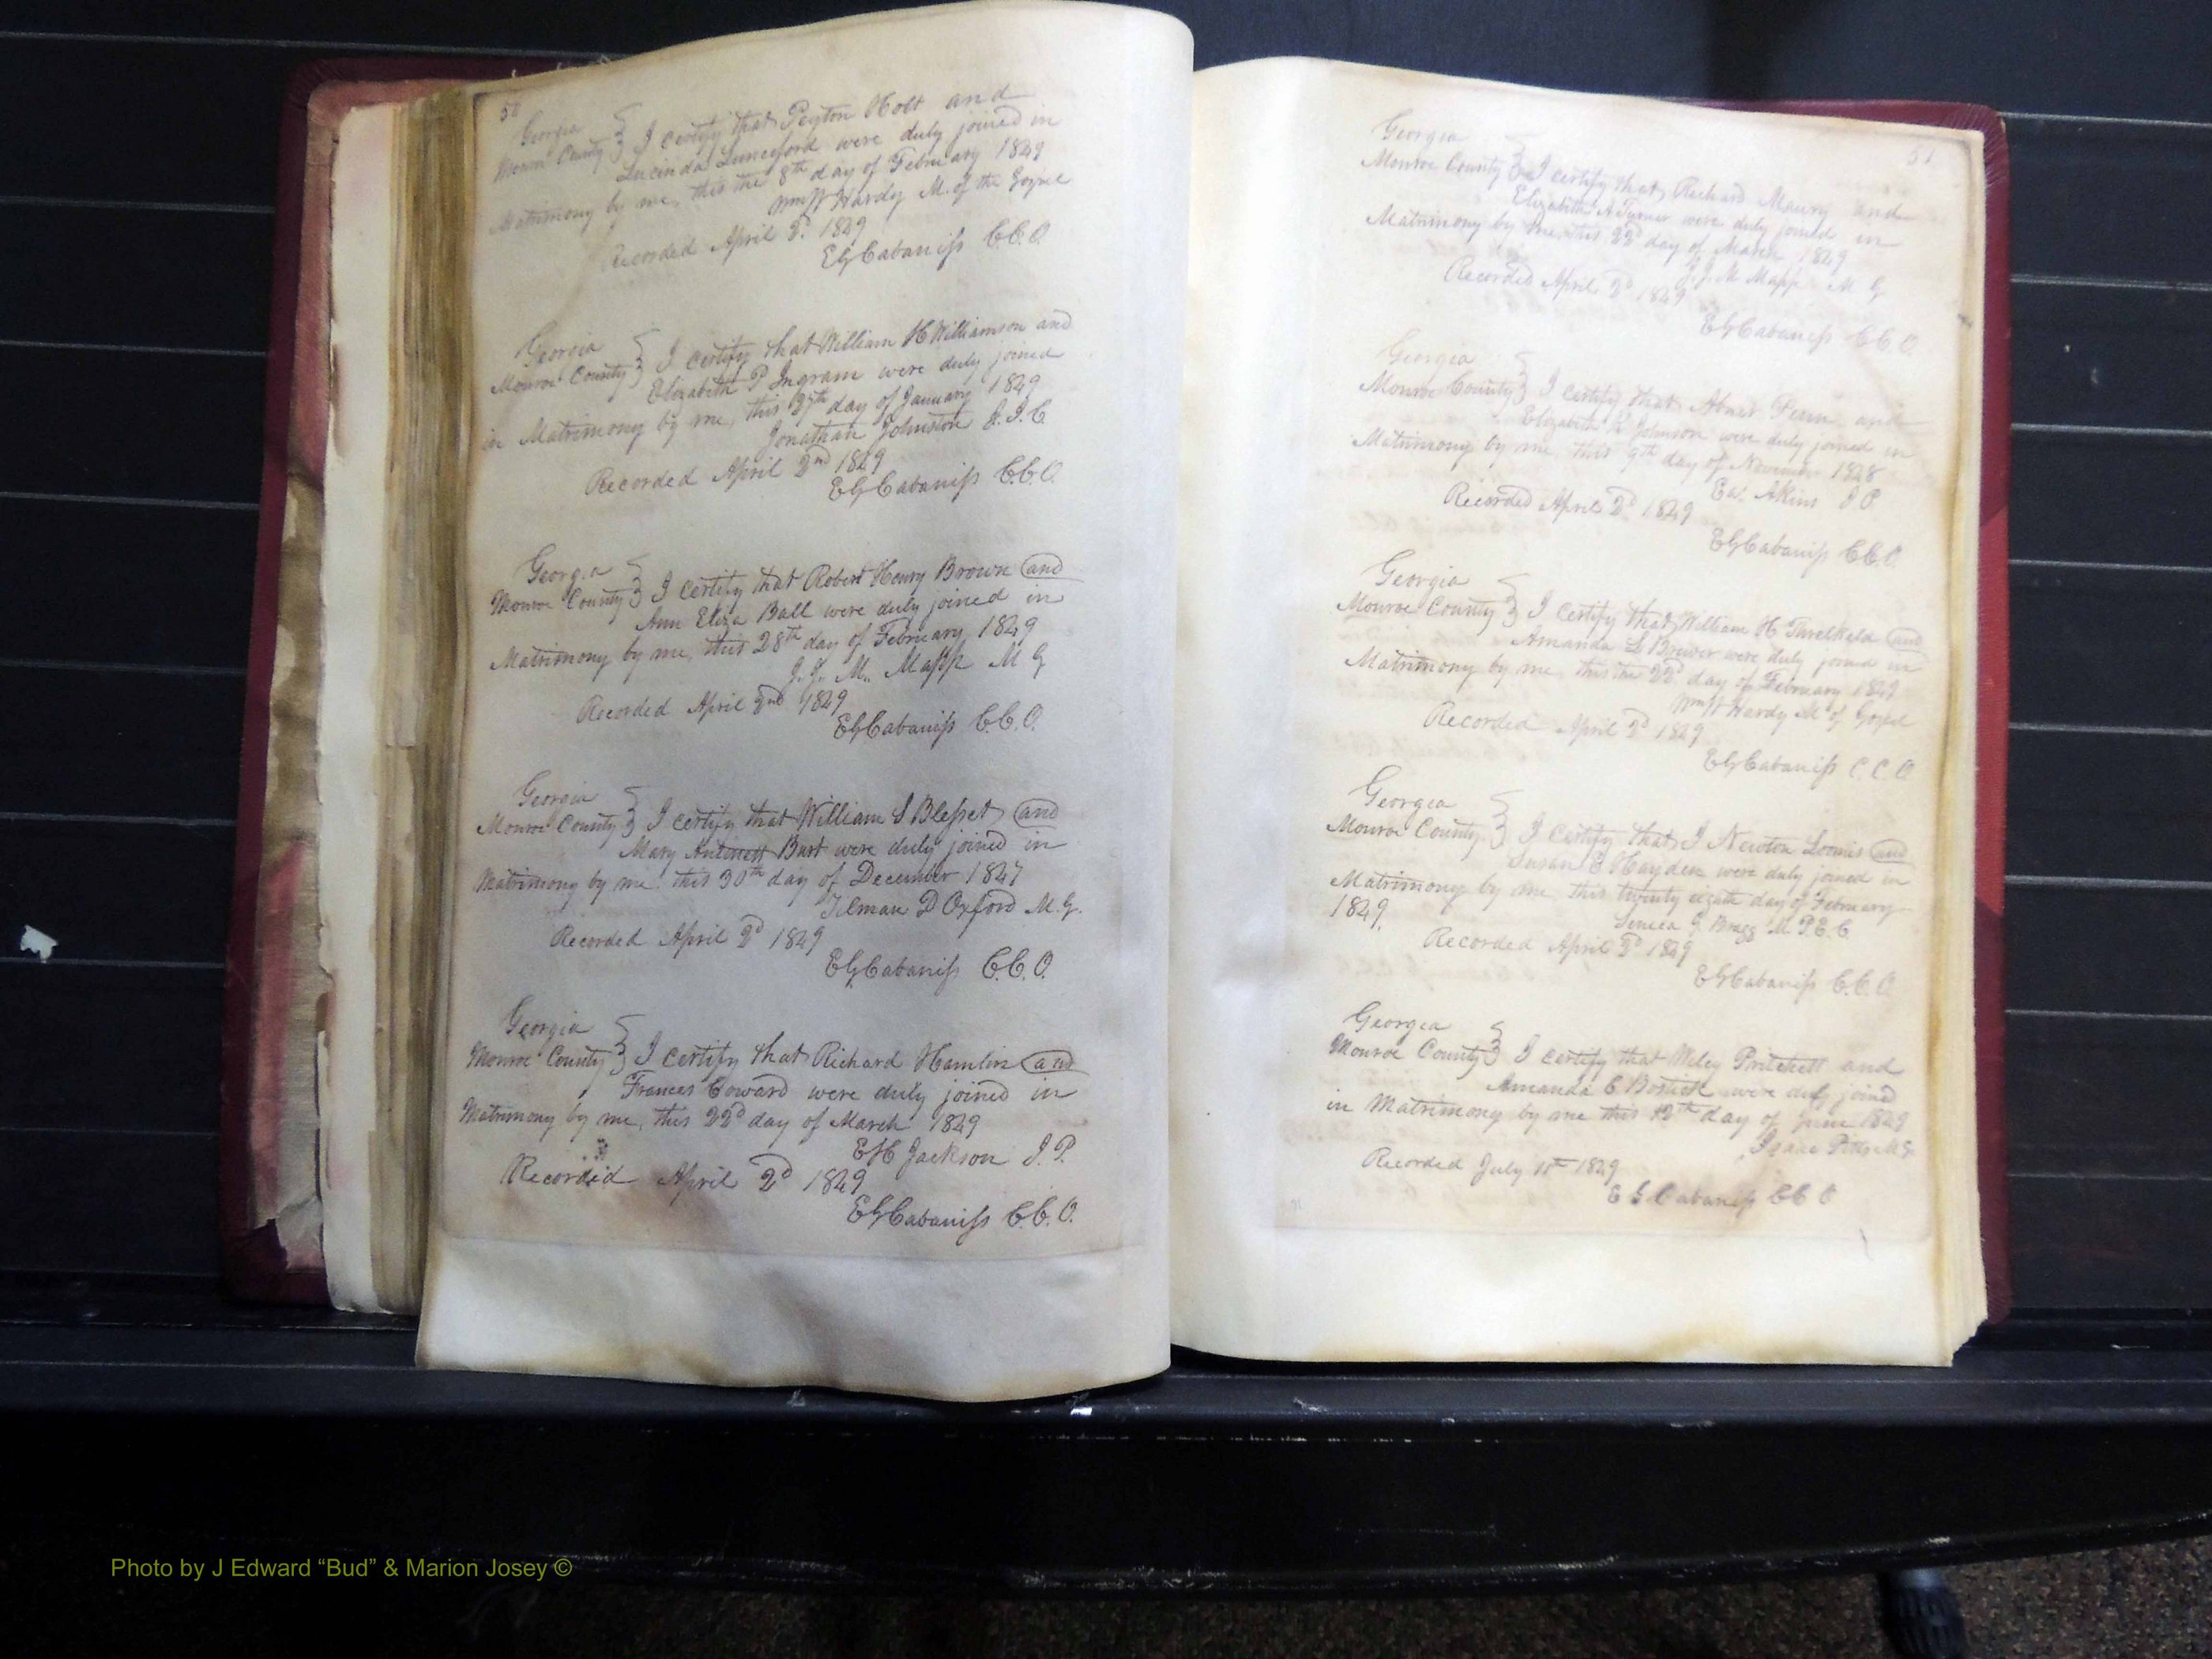 50
Georgia
Monroe County } I certify that Peyton Holt and
Lucinda Lunceford were duly joined in
Matrimony by me, this the 8th day of February 1849
Wm W Hardy M. of the Gospel
Recorded April 2d 1849
EGCabaniss C.C.O.
Georgia
Monroe County } I certify that William H Williamson and
Elizabeth P Ingram were duly joined
in Matrimony by me, this 27th day of January 1849
Jonathan Johnston J.I.C
Recorded April 2nd 1849
EGCabaniss C.C.O.
Georgia
Monroe County } I certify that Robert Henry Brown and
Ann Eliza Ball were duly joined in
Matrimony by me, this 28th day of February 1849
J. J. M. Mapp M G
Recorded April 2nd 1849
EGCabaniss C.C.O.
Georgia
Monroe County } I certify that William S Blesset and
Mary Antonett Burt were duly joined in
Matrimony by me this 30th day of December 1847
Tilman D Oxford M.G.
Recorded April 2d 1849
EGCabaniss C.C.O.
Georgia
Monroe County } I certify that Richard Hamlin and
Frances Coward were duly joined in
Matrimony by me, this 22d day of March 1849
EH Jackson J.P.
Recorded April 2d 1849
EGCabaniss C.C.O.
51
Georgia
Monroe County } I certify that Richard Maury and
Elizabeth A Turner were duly joined in
Matrimony by me, this 22d day of March 1849
J.J.M Mapp M G
Recorded April 2d 1849
EGCabaniss C C O.
Georgia
Monroe County } I certify that Abner Penn and
Elizabeth R Johnson were duly joined in
Matrimony by me, this 9th day of November 1848
Akins J P
Recorded April 2d 1849
EGCabaniss C C O.
Georgia
Monroe County } I certify that William H Threlkeld and
Amanda S Brewer were duly joined in
Matrimony by me this the 22d day of February 1849
Wm W Hardy M of Gospel
Recorded April 2d 1849
EGCabaniss C.C.O
Georgia
Monroe County } I certify that J Newton Loomis and
Susan E Hayden were duly joined in
Matrimony by me this twenty eigath day of February
1849.
Seneca G. Bragg M.P.E.C.
Recorded April 2d 1849
EGCabaniss C.C.O.
Georgia
Monroe County } I certify that Wiley Pritchett and
Amanda C Bostick were duly joined
in Matrimony by me this 12th day of June 1849
Isaac
Recorded July 1849
E G Cabaniss C C O
Photo by J Edward “Bud” & Marion Josey ©